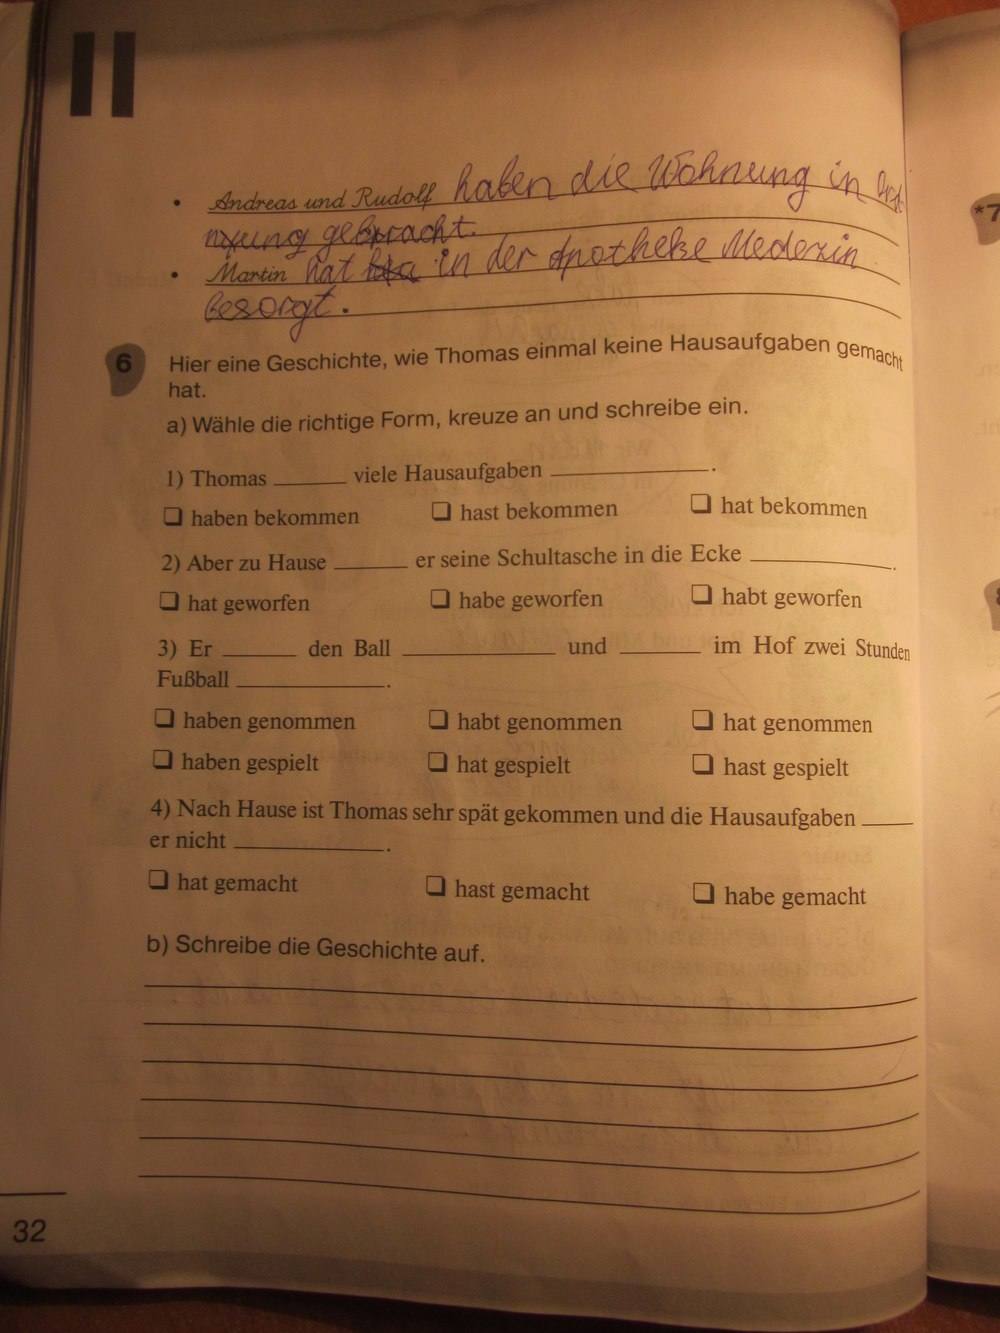 II
• Andreas und Rudolf haben die Wohnung in Ord
nung gebracht.
• Martin hat in der Apotheke Mederin
besorgt.
6 Hier eine Geschichte, wie Thomas einmal keine Hausaufgaben gemacht
hat.
a) Wähle die richtige Form, kreuze an und schreibe ein.
1) Thomas ______ viele Hausaufgaben ______.
❏ haben bekommen ❏ hast bekommen ❏ hat bekommen
2) Aber zu Hause ______ er seine Schultasche in die Ecke ______.
❏ hat geworfen ❏ habe geworfen ❏ habt geworfen
3) Er ______ den Ball ______ und ______ im Hof zwei Stunden
Fußball ______.
❏ haben genommen ❏ habt genommen ❏ hat genommen
❏ haben gespielt ❏ hat gespielt ❏ hast gespielt
4) Nach Hause ist Thomas sehr spät gekommen und die Hausaufgaben ____
er nicht ______.
❏ hat gemacht ❏ hast gemacht ❏ habe gemacht
b) Schreibe die Geschichte auf.
32
*7